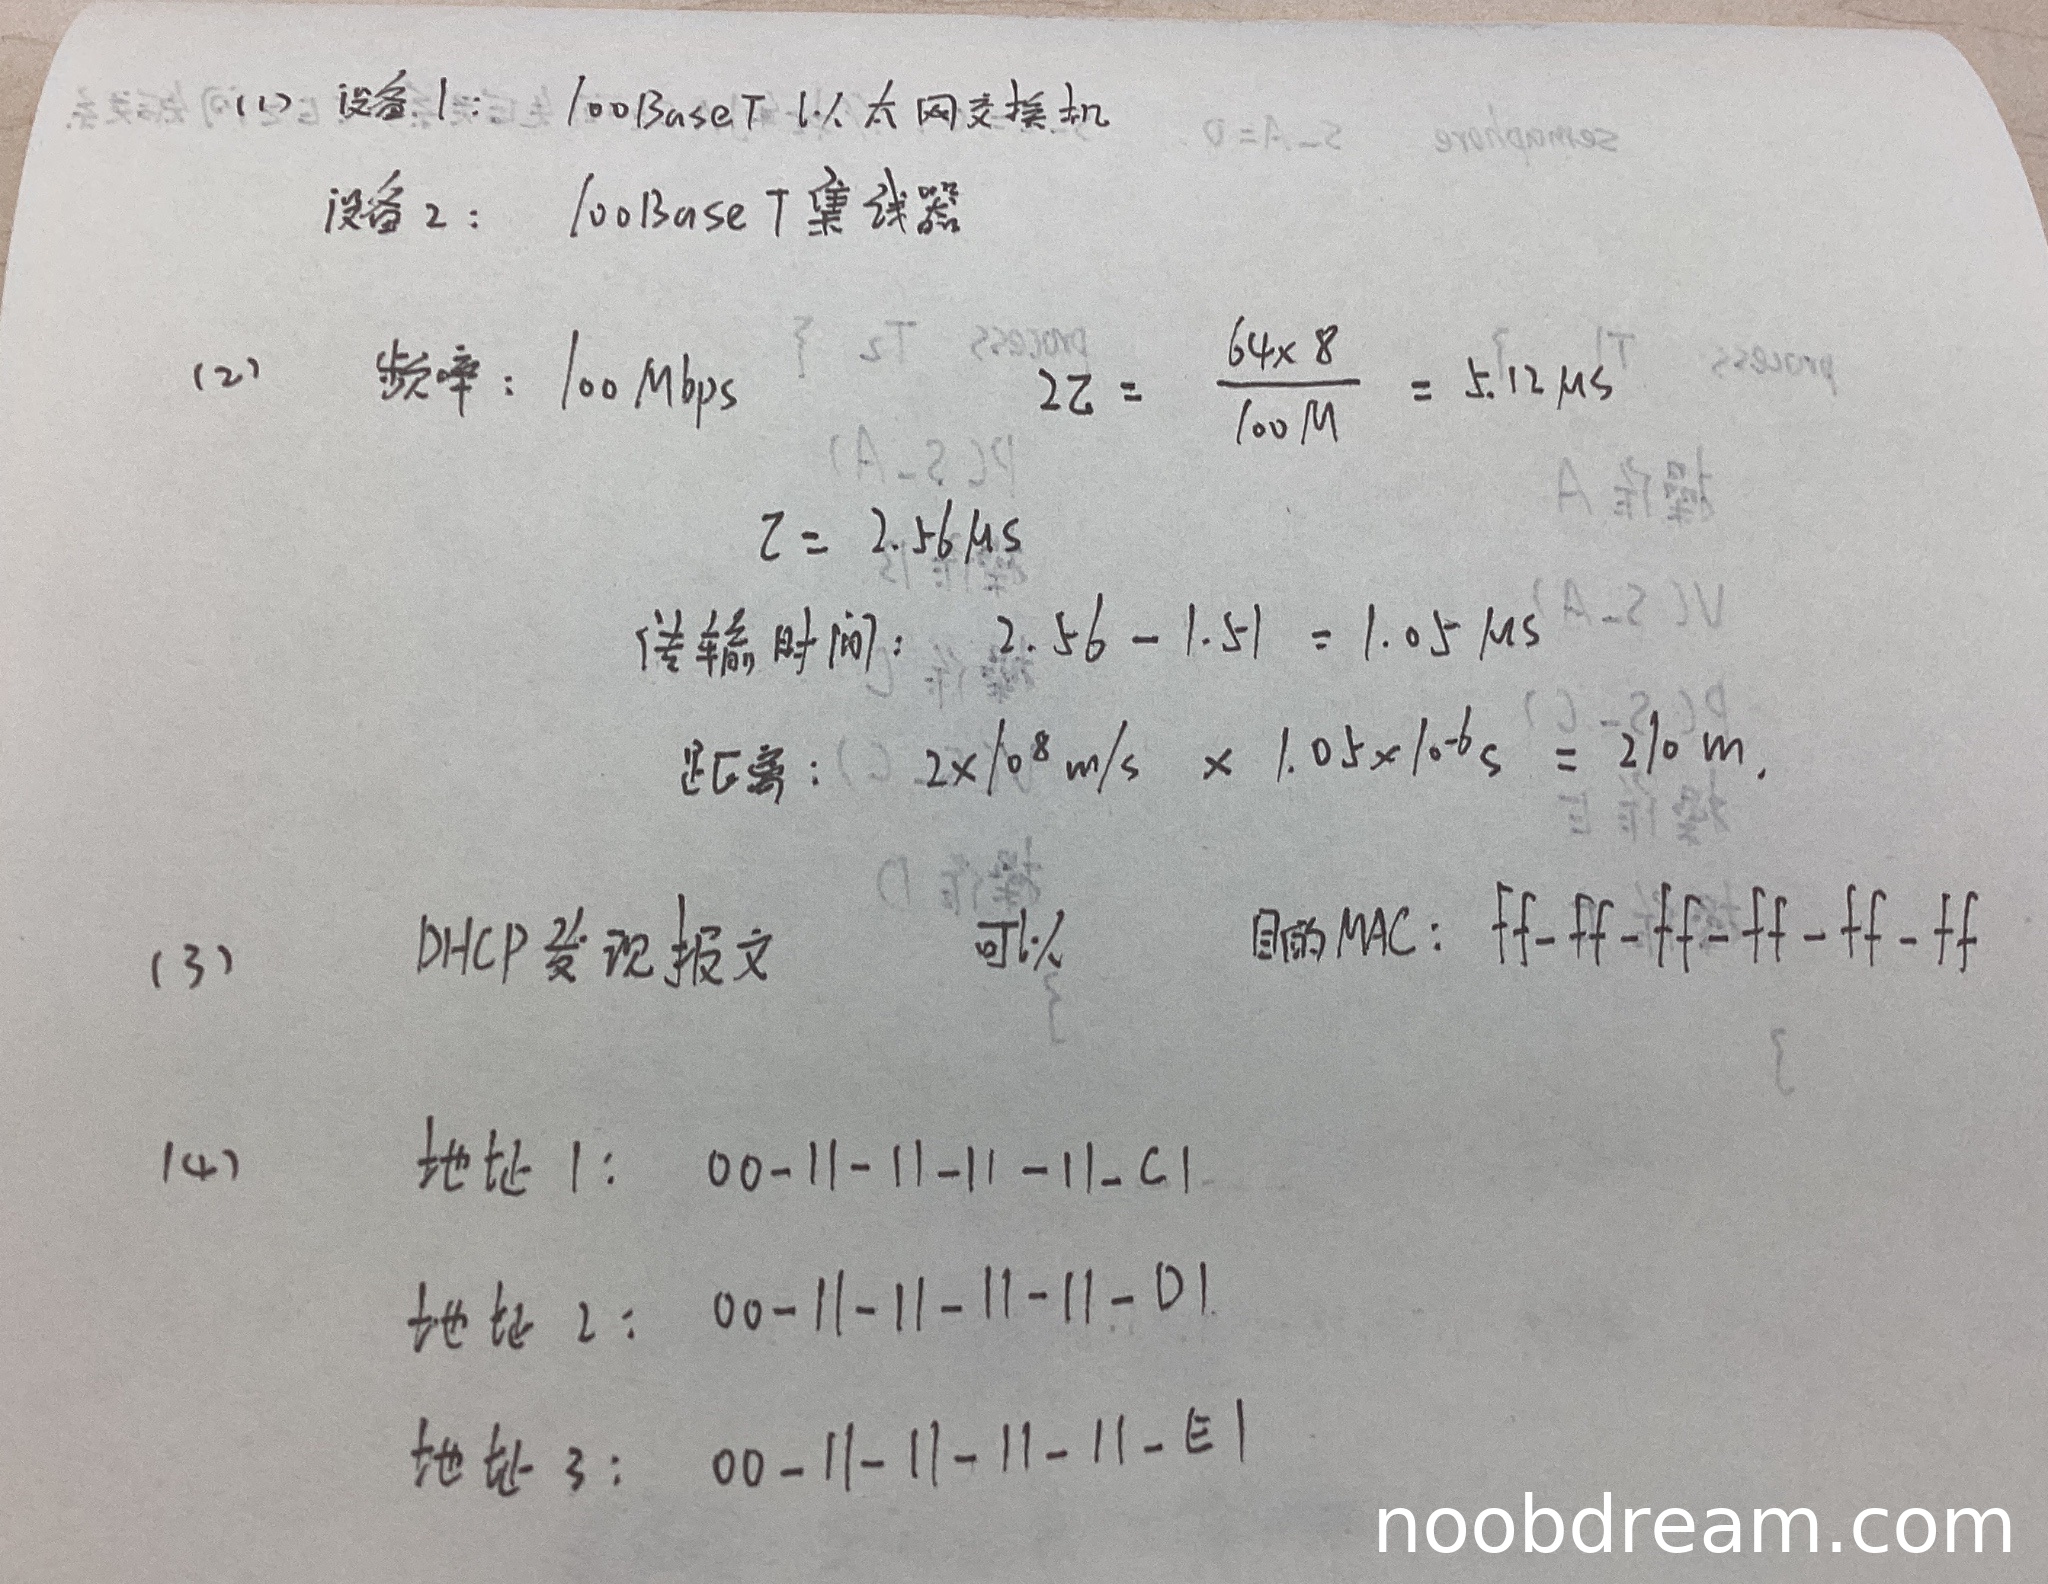 (1) 设备1: 100BaseT 以太网交换机
设备2: 100BaseT集线器
(2) 频率: 100Mbps 2τ = 64×8 / 100M = 5.12μs
τ = 2.56μs
传输时间: 2.56 - 1.51 = 1.05μs
距离: 2×10⁸m/s × 1.05×10⁻⁶s = 210m.
(3) DHCP发现报文 可以 目的MAC: ff-ff-ff-ff-ff-ff
(4) 地址1: 00-11-11-11-11-C1
地址2: 00-11-11-11-11-D1
地址3: 00-11-11-11-11-E1
noobdream.com